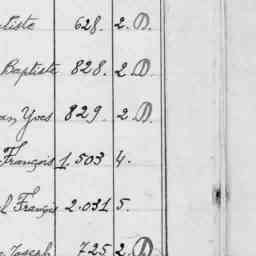 tiste 628. 2. D.
Baptiste 828. 2 D
an Yves 829. 2. D.
François 1.503 4.
l François 2.031 5.
Joseph 725 2. D